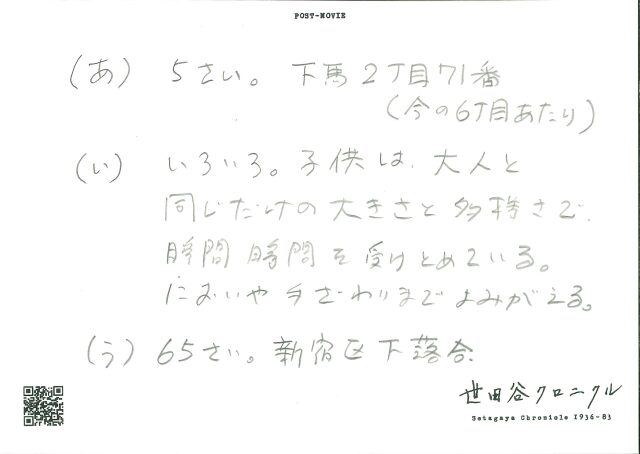 POST-MOVIE
(あ) 5さい。下馬2丁目71番
(今の6丁目あたり)
(い) いろいろ。子供は、大人と
同じだけの大きさと多様さで、
瞬間瞬間を受けとめている。
においや手ざわりまでよみがえる。
(う) 65さい。新宿区下落合
世田谷クロニクル
Setagaya Chronicle 1936-83